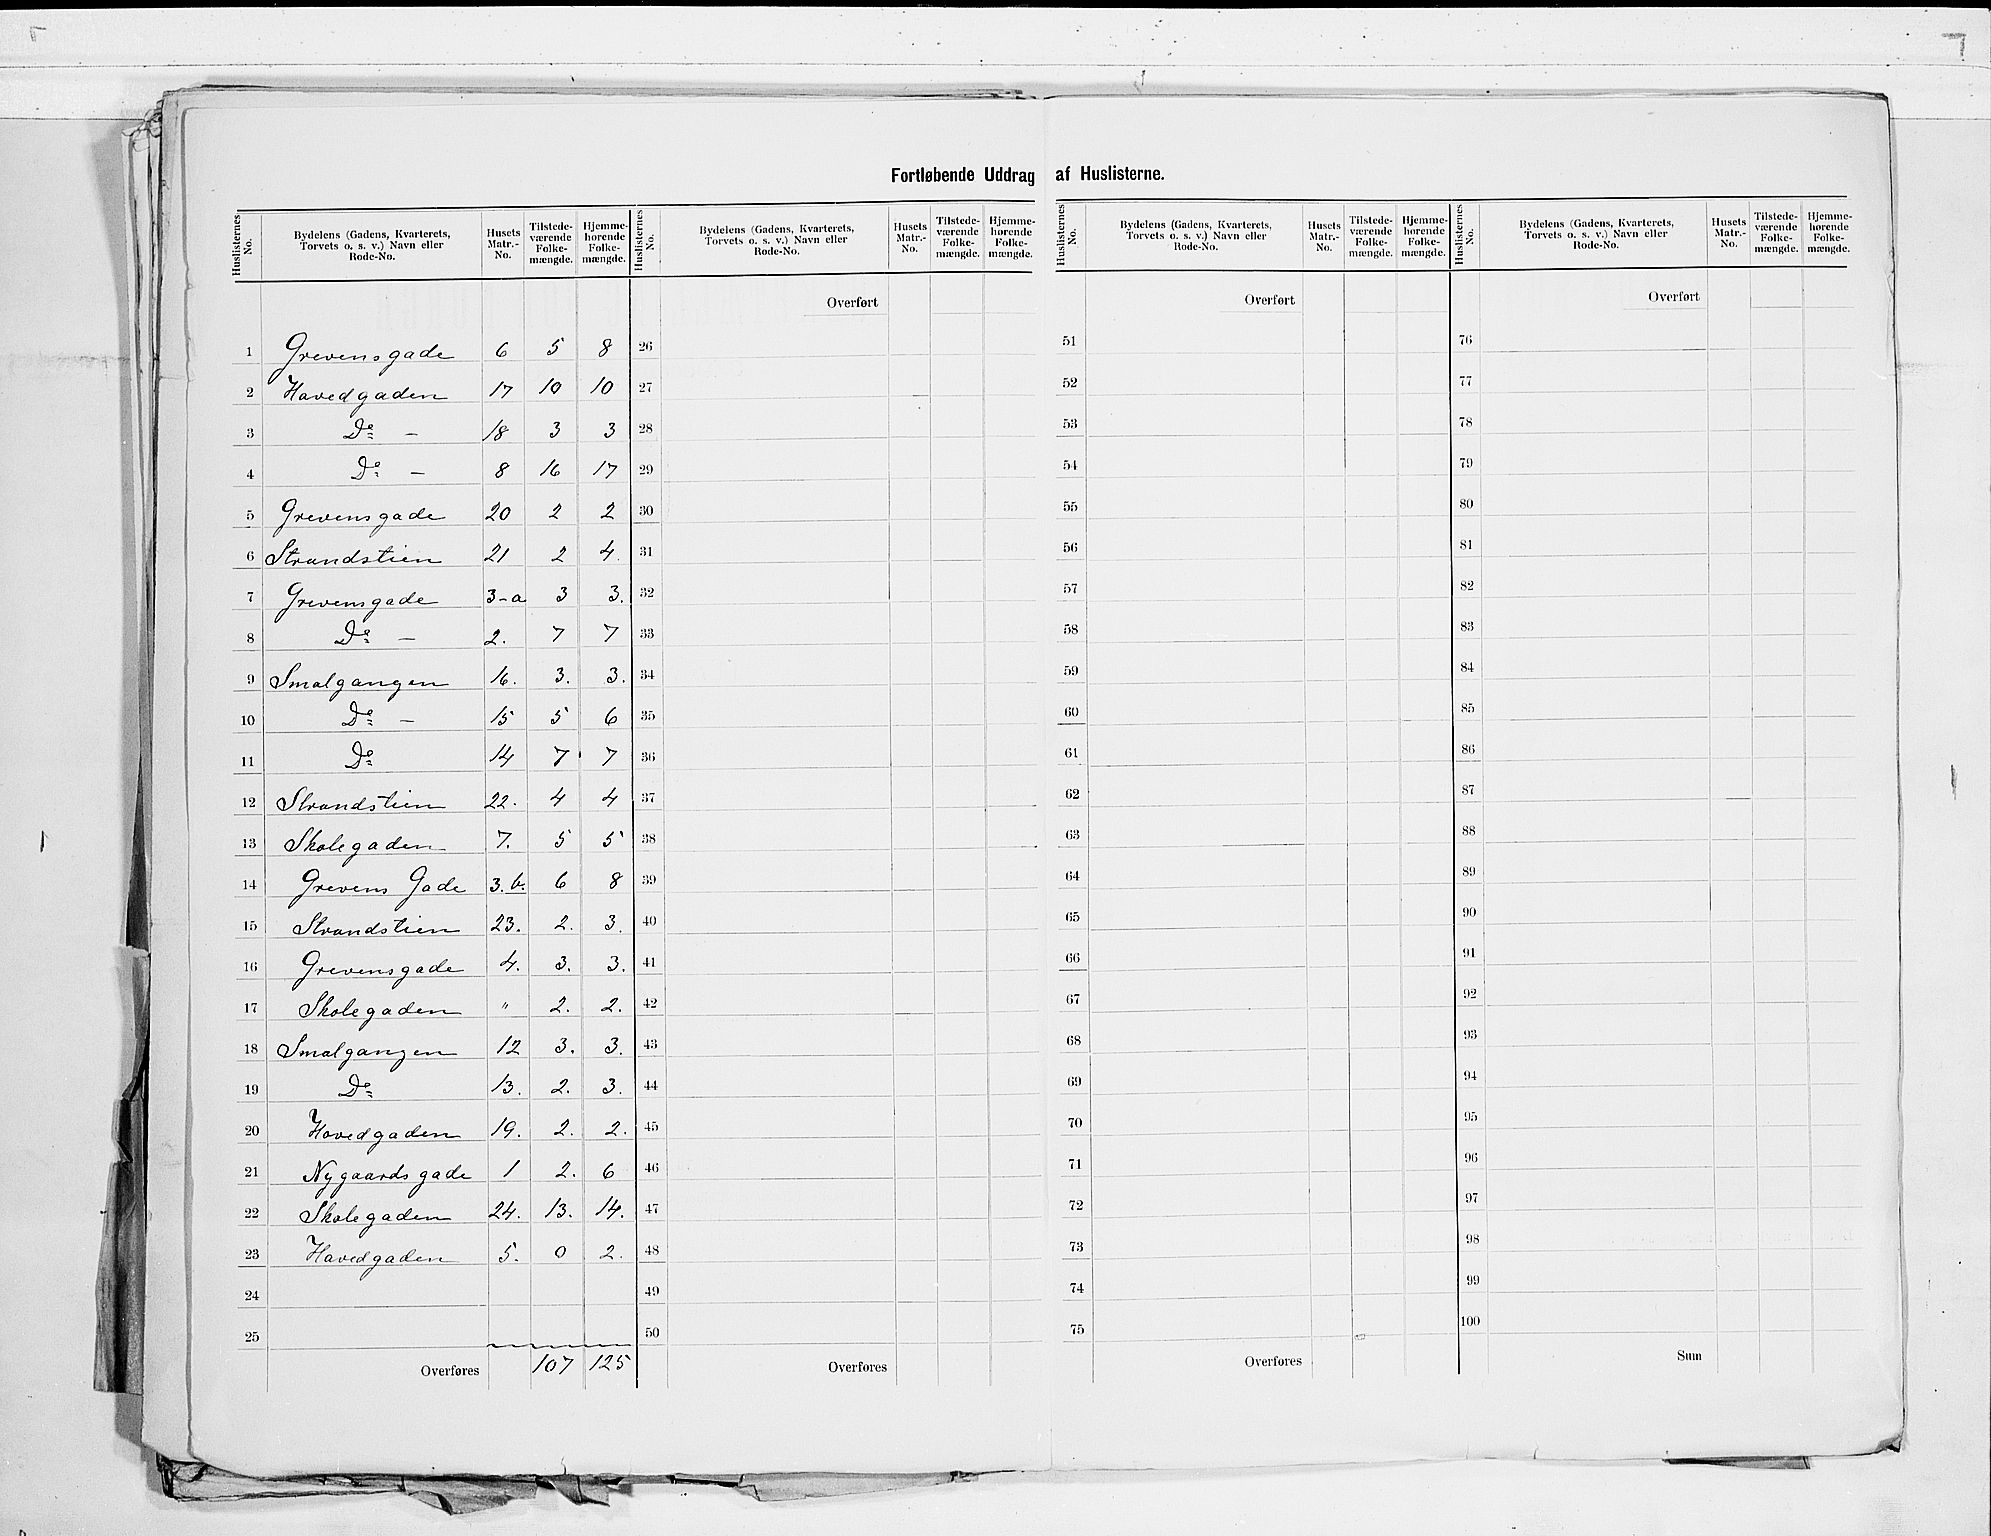 Fortløbende Uddrag af Huslisterne.
Huslisternes No. | Bydelens (Gadens, Kvarterets, Torvets o. s. v.) Navn eller Rode-No. | Husets Matr.-No. | Tilstedeværende Folkemængde. | Hjemmehørende Folkemængde. | Huslisternes No. | Bydelens (Gadens, Kvarterets, Torvets o. s. v.) Navn eller Rode-No. | Husets Matr.-No. | Tilstedeværende Folkemængde. | Hjemmehørende Folkemængde. | Huslisternes No. | Bydelens (Gadens, Kvarterets, Torvets o. s. v.) Navn eller Rode-No. | Husets Matr.-No. | Tilstedeværende Folkemængde. | Hjemmehørende Folkemængde. | Huslisternes No. | Bydelens (Gadens, Kvarterets, Torvets o. s. v.) Navn eller Rode-No. | Husets Matr.-No. | Tilstedeværende Folkemængde. | Hjemmehørende Folkemængde.
Overført Overført Overført
1 Grevensgade 6 5 8 26 51 76
2 Hovedgaden 17 10 10 27 52 77
3 Do — 18 3 3 28 53 78
4 Do — 8 16 17 29 54 79
5 Grevensgade 20 2 2 30 55 80
6 Strandstien 21 2 4. 31 56 81
7 Grevensgade 3-a 3 3. 32 57 82
8 Do — 2. 7 7 33 58 83
9 Smalgangen 16. 3. 3. 34 59 84
10 Do — 15 5 6 35 60 85
11 Do 14 7 7 36 61 86
12 Strandstien 22. 4 4 37 62 87
13 Skolegaden 7. 5 5 38 63 88
14 Grevens Gade 3.b. 6 8 39 64 89
15 Strandstien 23. 2. 3. 40 65 90
16 Grevensgade 4. 3. 3. 41 66 91
17 Skolegaden " 2. 2. 42 67 92
18 Smalgangen 12 3. 3. 43 68 93
19 Do 13. 2. 3. 44 69 94
20 Hovedgaden 19. 2. 2. 45 70 95
21 Nygaards gade 1 2. 6 46 71 96
22 Skolegaden 24. 13. 14. 47 72 97
23 Hovedgaden 5. 0 2. 48 73 98
24 49 74 99
25 50 75 100
Overføres 107 125 Overføres Overføres Sum